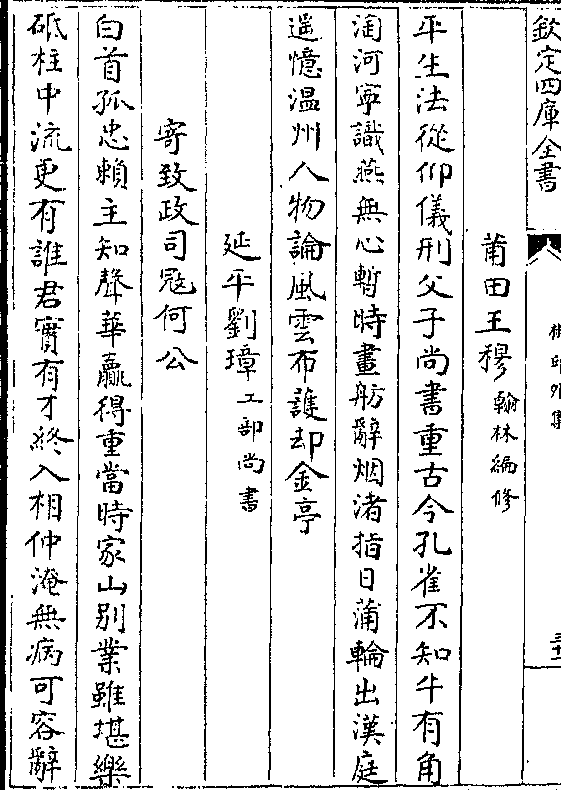 欽定四庫全書
莆田王穆翰林編修
平生法從仰儀刑父子尚書重古今孔雀不知牛有角
淘河寕識燕無心暫時畫舫辭烟渚指日蒲輪出漢庭
遥憶温州人物論風雲布護却金亭
延平劉璋工部尚書
寄致政司冦何公
白首孤忠賴主知聲華贏得重當時家山别業雖堪樂
砥柱中流更有誰君實有才終入相仲淹無病可容辭